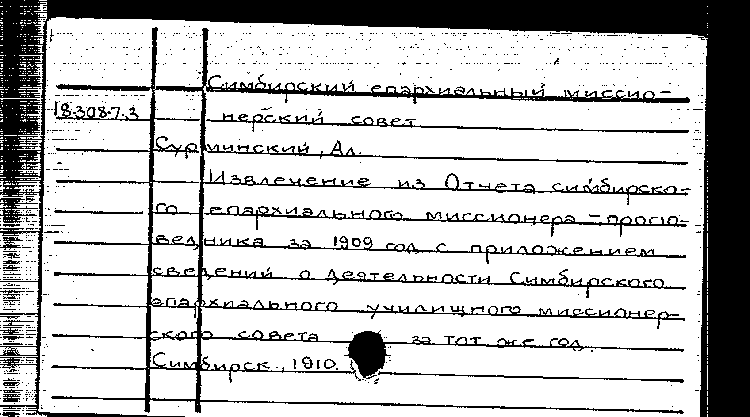 Симбирский епархиальный миссио-
18.308.7.3 нерский совет
Сурминский, Ал.
Извлечение из Отчета симбирско-
го епархиального миссионера - пропо-
ведника за 1909 год с приложением
сведений о деятельности Симбирского
епархиального училищного миссионер-
ского совета за тот же год.
Симбирск, 1910.